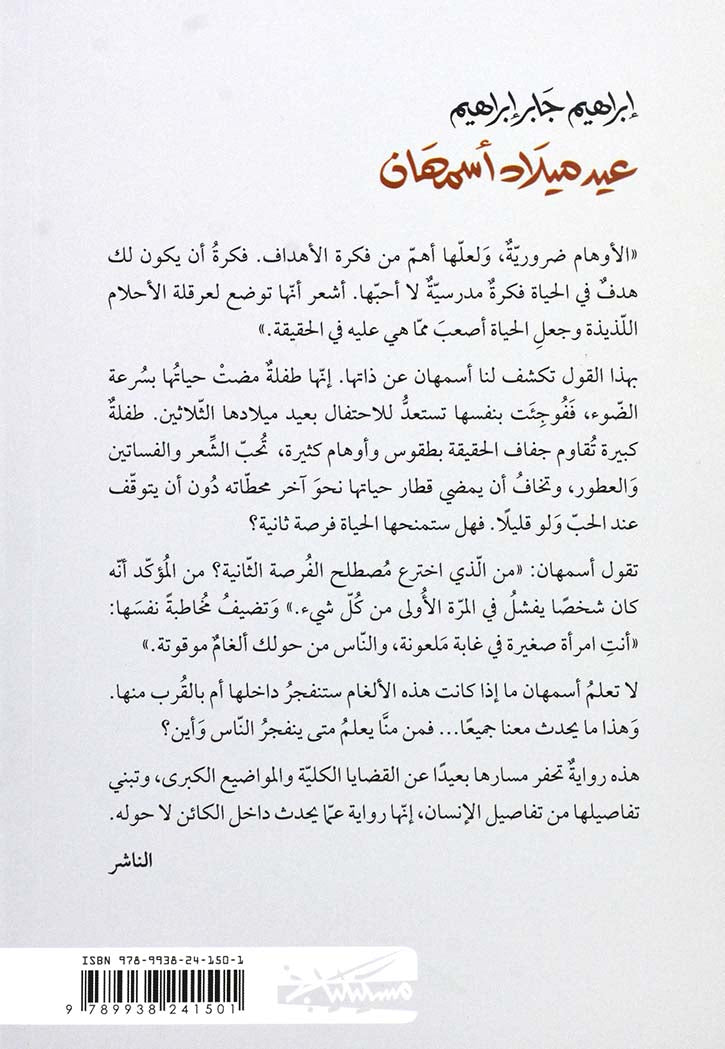 إبراهيم جَابر إبراهيم
عيد ميلَاد أسمهَان
«الأوهام ضروريّةٌ، وَلعلّها أهمّ من فكرة الأهداف. فكرةُ أن يكون لك
هدفٌ في الحياة فكرةٌ مدرسيّةٌ لا أحبّها. أشعر أنّها توضع لعرقلة الأحلام
اللّذيذة وجعلِ الحياة أصعبَ ممّا هي عليه في الحقيقة.»
بهذا القول تكشف لنا أسمهان عن ذاتها. إنّها طفلةٌ مضتْ حياتُها بسُرعة
الضّوء، فَفُوجِئَت بنفسها تستعدُّ للاحتفال بعيد ميلادها الثّلاثين. طفلةٌ
كبيرة تُقاوم جفاف الحقيقة بطقوس وأوهام كثيرة، تُحبّ الشِّعر والفساتين
وَالعطور، وتخافُ أن يمضي قطار حياتها نحوَ آخر محطّاته دُون أن يتوقّف
عند الحبّ وَلو قليلًا. فهل ستمنحها الحياة فرصة ثانية؟
تقول أسمهان: «من الّذي اخترع مُصطلح الفُرصة الثّانية؟ من المُؤكّد أنّه
كان شخصًا يفشلُ في المرّة الأُولى من كُلّ شيء.» وَتضيفُ مُخاطبةً نفسَها:
«أنتِ امرأة صغيرة في غابة مَلعونة، والنّاس من حولك ألغامٌ موقوتة.»
لا تعلمُ أسمهان ما إذا كانت هذه الألغام ستنفجرُ داخلها أم بالقُرب منها.
وَهذا ما يحدث معنا جميعًا... فمن منَّا يعلمُ متى ينفجرُ النّاس وَأين؟
هذه روايةٌ تحفر مسارها بعيدًا عن القضايا الكليّة والمواضيع الكبرى، وتبني
تفاصيلها من تفاصيل الإنسان، إنّها رواية عمّا يحدث داخل الكائن لا حوله.
الناشر
ISBN 978-9938-24-150-1
9 789938 241501